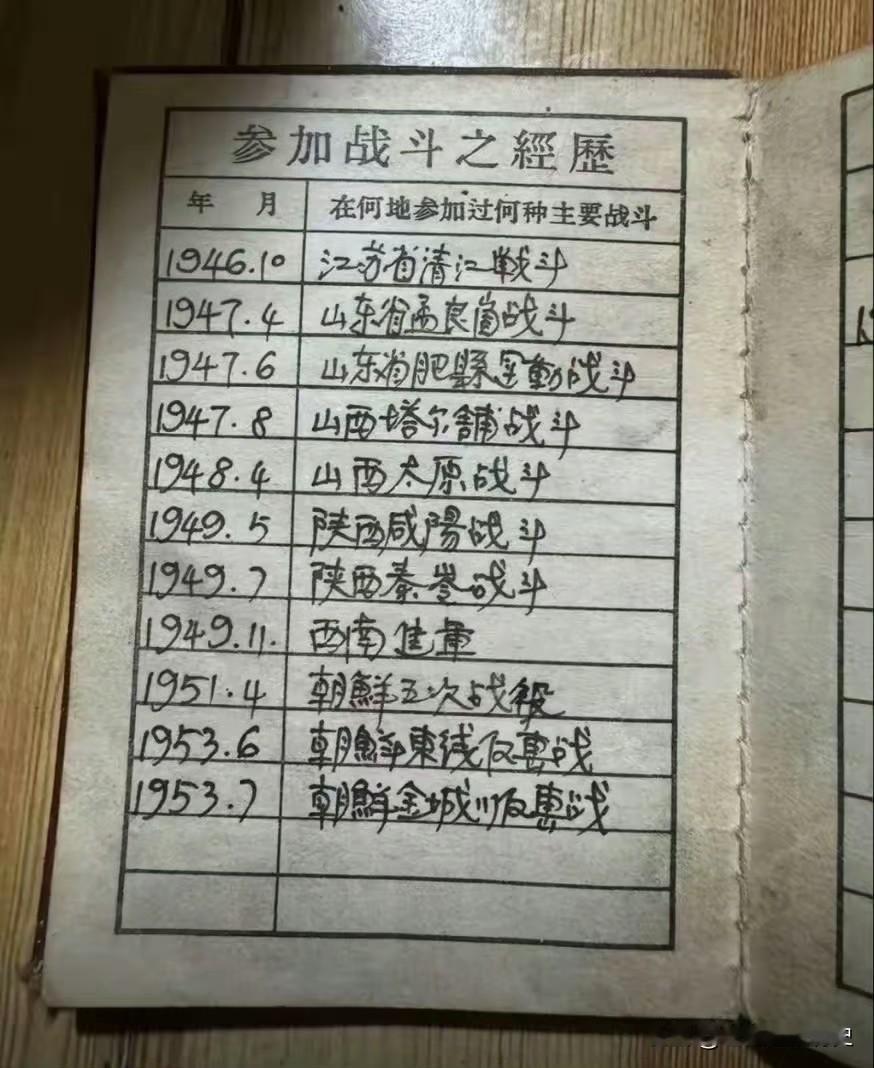 参加战斗之經歷
年 月 在何地参加过何种主要战斗
1946.10 江苏省清江战斗
1947.4 山东省孟良崮战斗
1947.6 山东省肥縣 動战斗
1947.8 山西塔尔舖战斗
1948.4 山西太原战斗
1949.5 陕西咸陽战斗
1949.7 陕西秦岺战斗
1949.11. 西南進軍
1951.4 朝鮮五次战役
1953.6 朝鮮東线反击战
1953.7 朝鮮金城川反击战